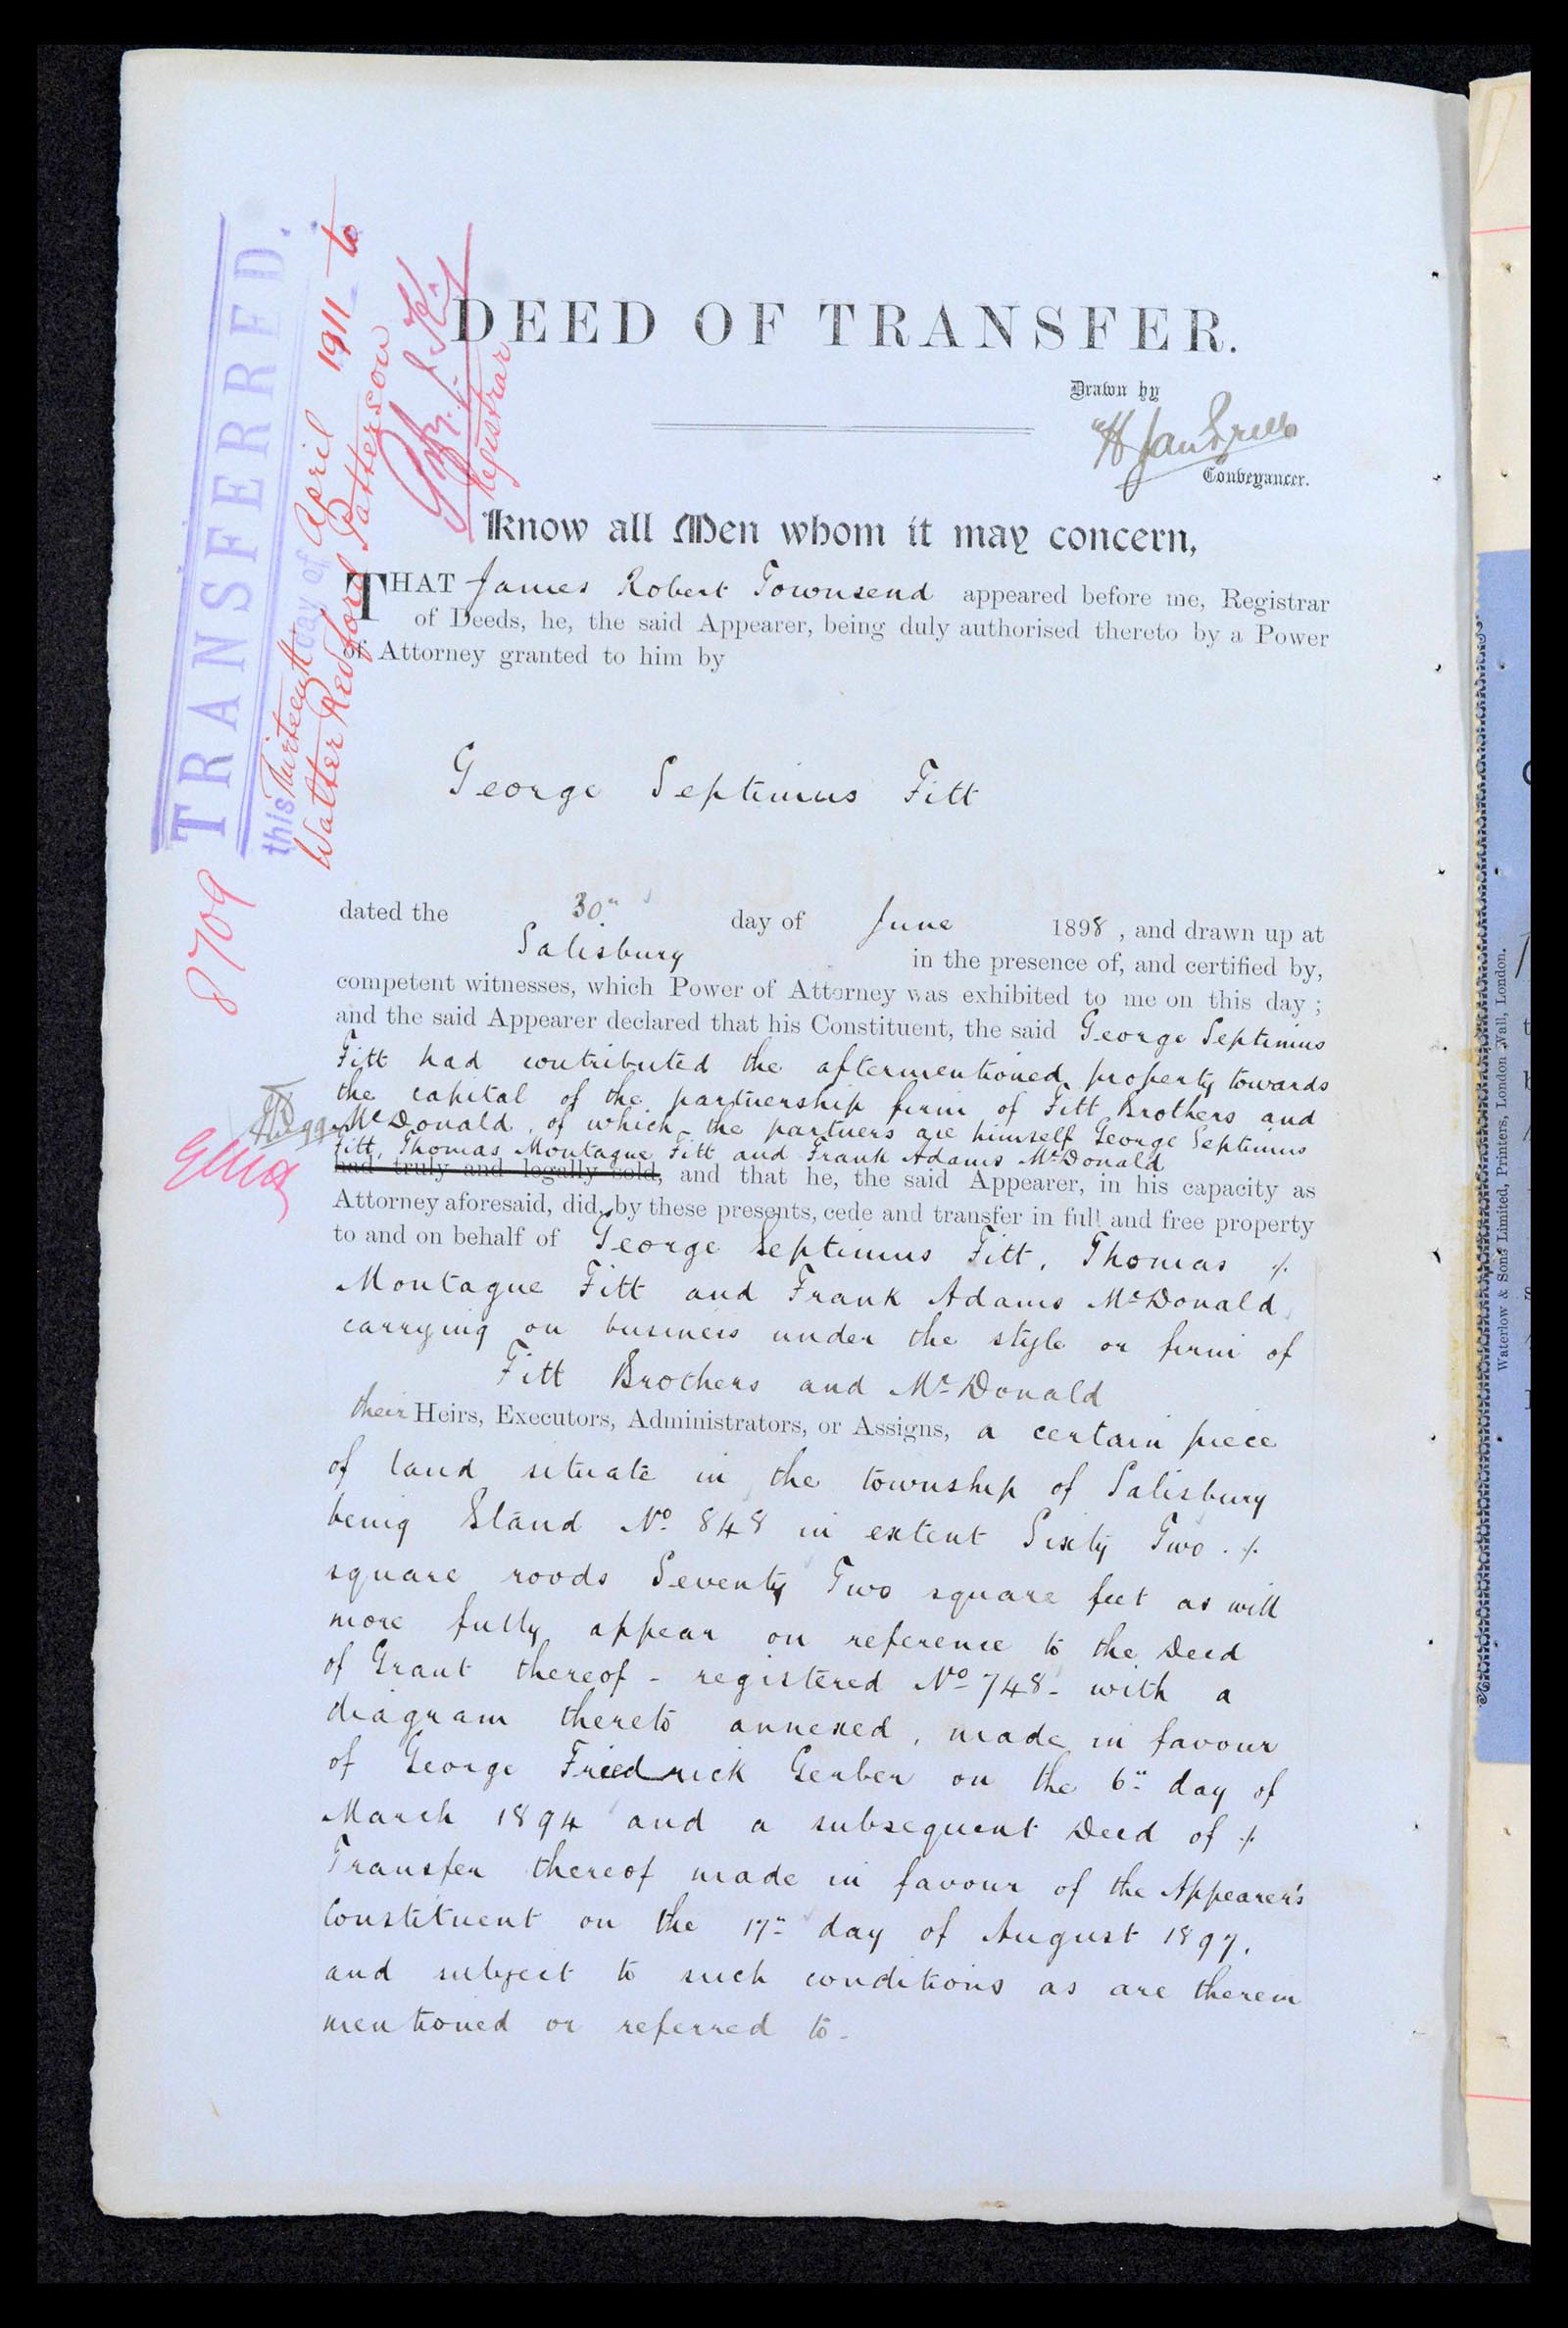 TRANSFERRED.
this Thirteenth day of April 1911 to
Walter Redford Patterson
Registrar
8709
DEED OF TRANSFER.
Drawn by
Conveyancer.
Know all Men whom it may concern,
THAT James Robert Townsend appeared before me, Registrar
of Deeds, he, the said Appearer, being duly authorised thereto by a Power
of Attorney granted to him by
George Septimus Fitt
dated the 30" day of June 1898, and drawn up at
Salisbury in the presence of, and certified by,
competent witnesses, which Power of Attorney was exhibited to me on this day ;
and the said Appearer declared that his Constituent, the said George Septimus
Fitt had contributed the aftermentioned property towards
the capital of the partnership firm of Fitt Brothers and
McDonald, of which the partners are himself George Septimus
Fitt, Thomas Montague Fitt and Frank Adams McDonald
had truly and legally sold, and that he, the said Appearer, in his capacity as
Attorney aforesaid, did, by these presents, cede and transfer in full and free property
to and on behalf of George Septimus Fitt, Thomas
Montague Fitt and Frank Adams McDonald
carrying on business under the style or firm of
Fitt Brothers and McDonald
their Heirs, Executors, Administrators, or Assigns, a certain piece
of land situate in the township of Salisbury
being Stand No. 848 in extent Sixty Two
square roods Seventy Two square feet as will
more fully appear on reference to the Deed
of Grant thereof - registered No 748 - with a
diagram thereto annexed, made in favour
of George Friedrick Gerber on the 6" day of
March 1894 and a subsequent Deed of
Transfer thereof made in favour of the Appearer's
Constituent on the 17" day of August 1897,
and subject to such conditions as are therein
mentioned or referred to -
Waterlow & Sons Limited, Printers, London Wall, London.